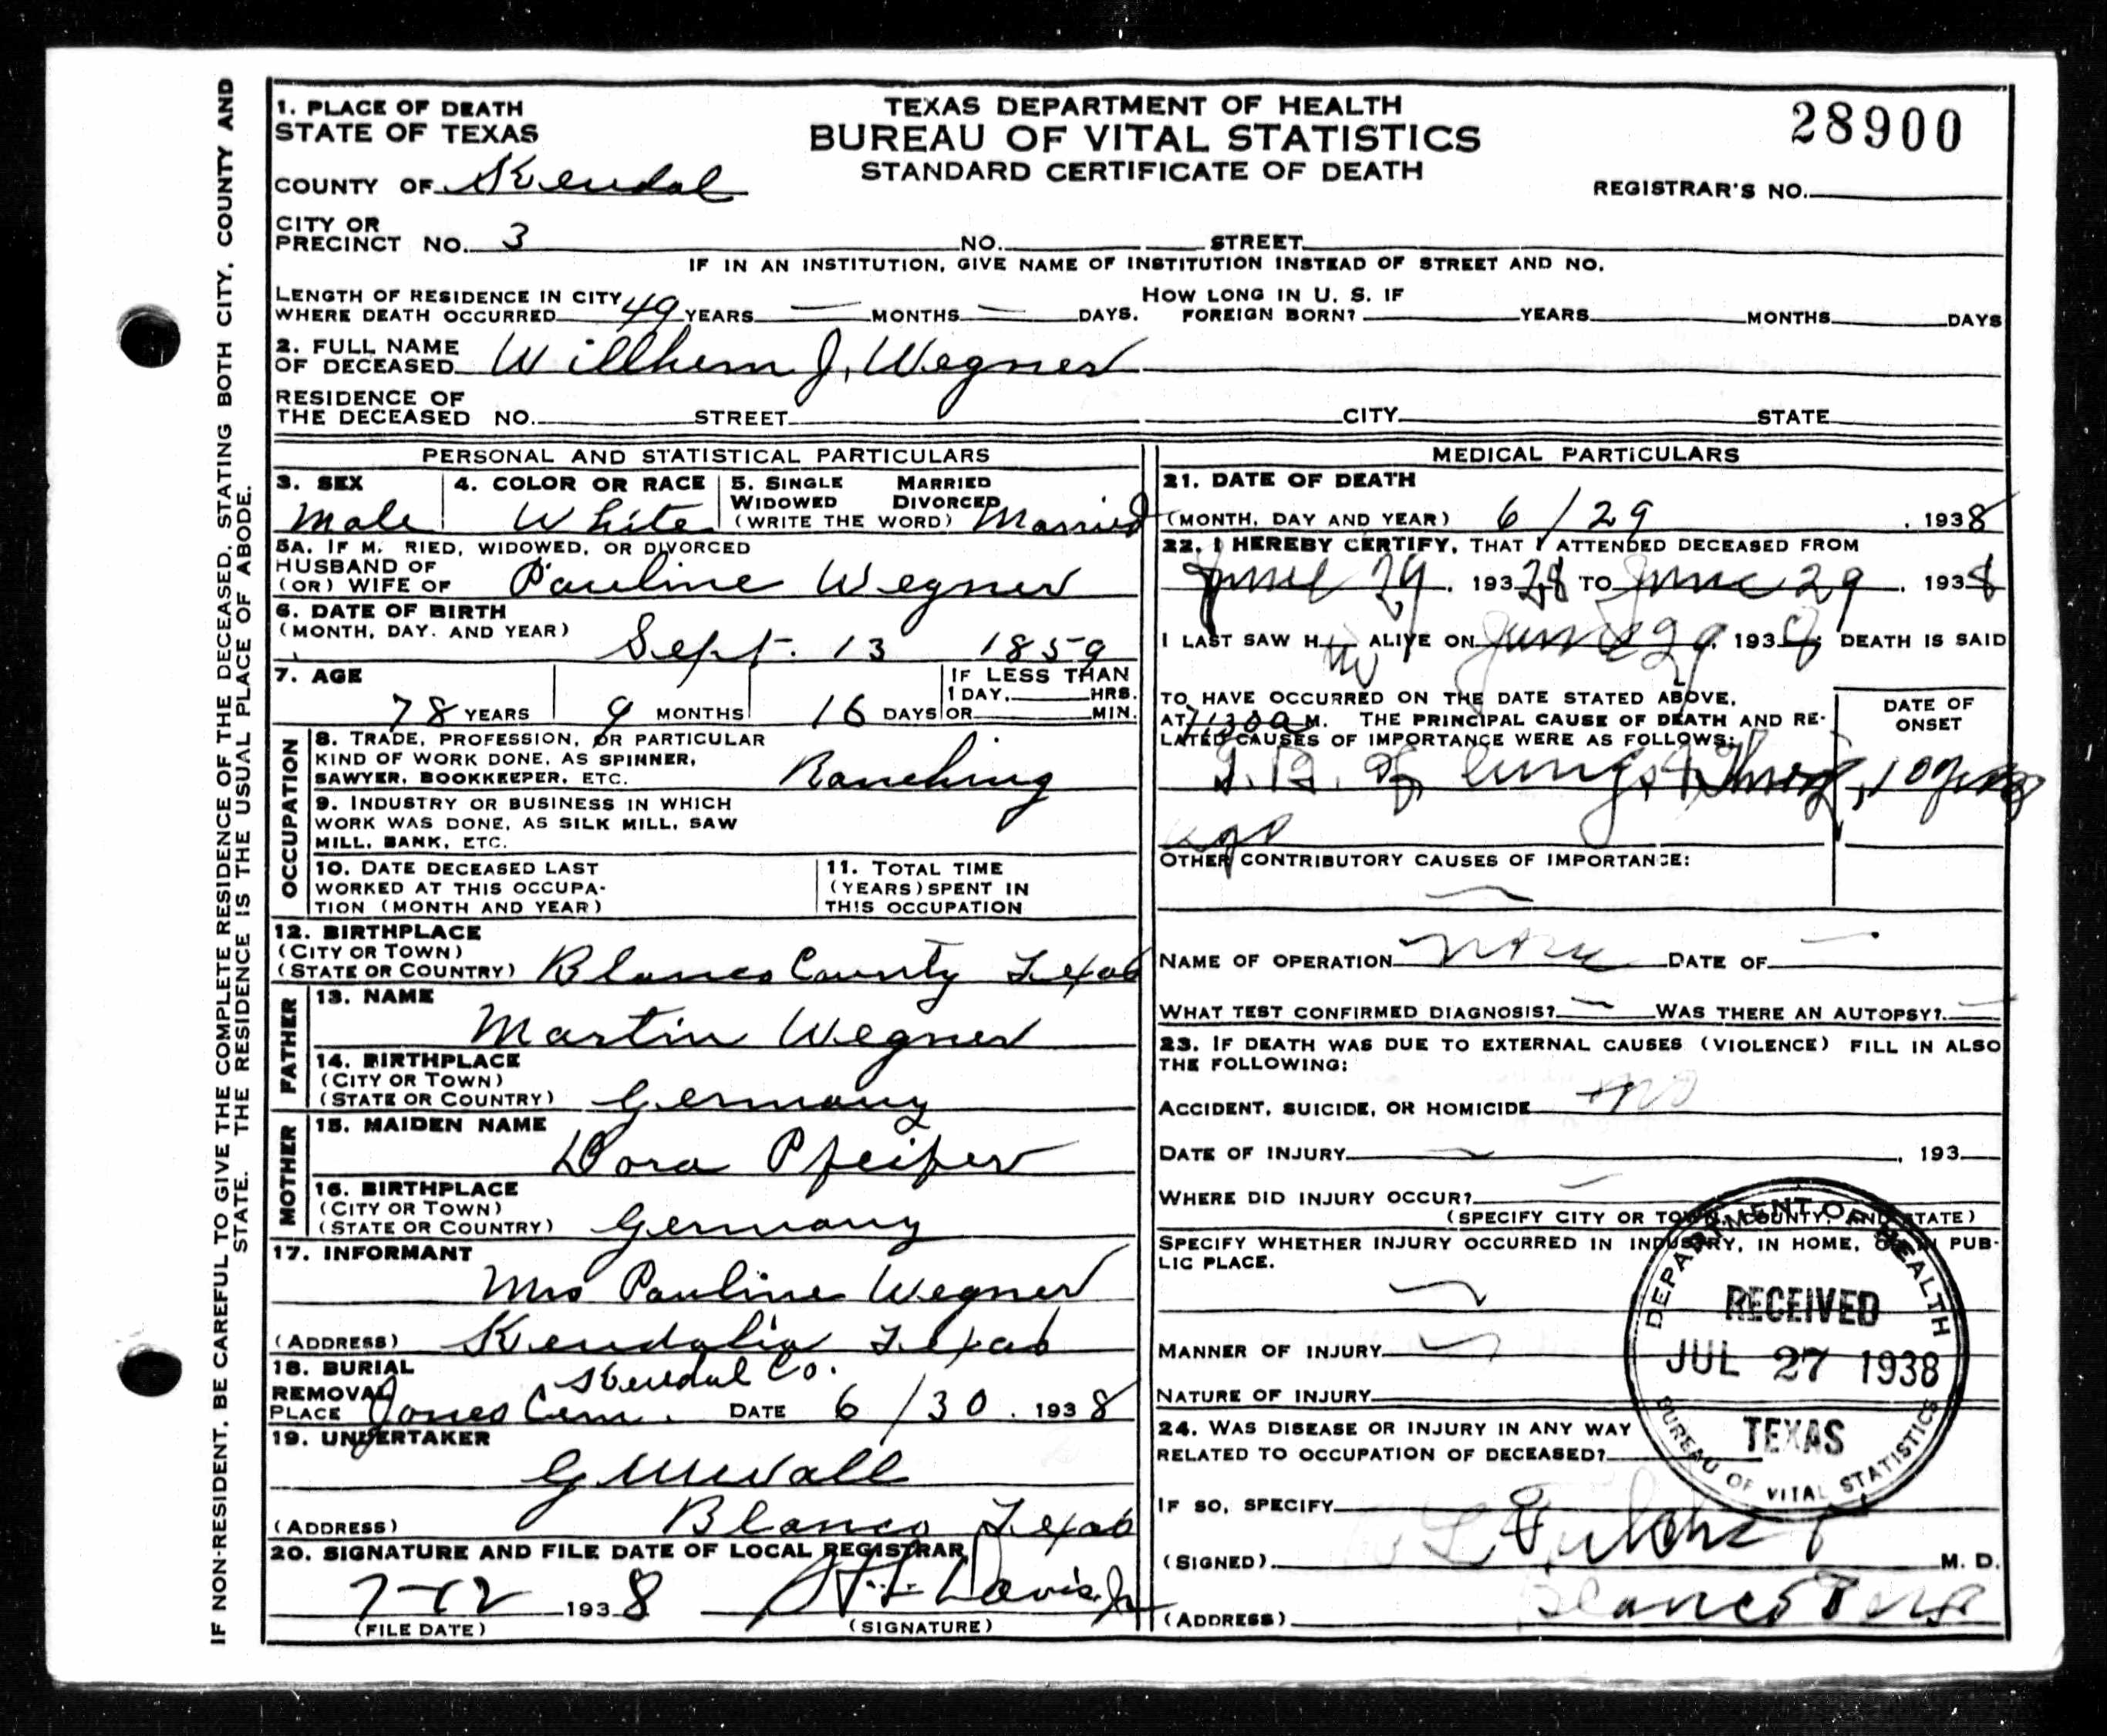 1. PLACE OF DEATH
STATE OF TEXAS
COUNTY OF Kendal
TEXAS DEPARTMENT OF HEALTH
BUREAU OF VITAL STATISTICS
STANDARD CERTIFICATE OF DEATH
28900
REGISTRAR'S NO.
CITY OR
PRECINCT NO. 3 NO. STREET
IF IN AN INSTITUTION, GIVE NAME OF INSTITUTION INSTEAD OF STREET AND NO.
LENGTH OF RESIDENCE IN CITY
WHERE DEATH OCCURRED 49 YEARS — MONTHS — DAYS.
HOW LONG IN U. S. IF
FOREIGN BORN? YEARS MONTHS DAYS
2. FULL NAME
OF DECEASED Willhem J. Wegner
RESIDENCE OF
THE DECEASED NO. STREET CITY STATE
PERSONAL AND STATISTICAL PARTICULARS
3. SEX
Male
4. COLOR OR RACE
White
5. SINGLE MARRIED
WIDOWED DIVORCED
(WRITE THE WORD) Married
5A. IF M RIED, WIDOWED, OR DIVORCED
HUSBAND OF
(OR) WIFE OF Pauline Wegner
6. DATE OF BIRTH
(MONTH, DAY. AND YEAR) Sept. 13 1859
7. AGE
78 YEARS 9 MONTHS 16 DAYS
IF LESS THAN
1 DAY, HRS.
OR MIN.
OCCUPATION
8. TRADE, PROFESSION, OR PARTICULAR
KIND OF WORK DONE, AS SPINNER,
SAWYER, BOOKKEEPER, ETC. Ranching
9. INDUSTRY OR BUSINESS IN WHICH
WORK WAS DONE, AS SILK MILL, SAW
MILL, BANK, ETC.
10. DATE DECEASED LAST
WORKED AT THIS OCCUPA-
TION (MONTH AND YEAR)
11. TOTAL TIME
(YEARS) SPENT IN
THIS OCCUPATION
12. BIRTHPLACE
(CITY OR TOWN)
(STATE OR COUNTRY) Blanco County Texas
FATHER
13. NAME
Martin Wegner
14. BIRTHPLACE
(CITY OR TOWN)
(STATE OR COUNTRY) Germany
MOTHER
15. MAIDEN NAME
Dora Pfeifer
16. BIRTHPLACE
(CITY OR TOWN)
(STATE OR COUNTRY) Germany
17. INFORMANT
Mrs Pauline Wegner
(ADDRESS) Kendalia Texas
18. BURIAL Kendal Co.
REMOVAL
PLACE Jones Cem. DATE 6/30, 1938
19. UNDERTAKER
(ADDRESS) Blanco Texas
20. SIGNATURE AND FILE DATE OF LOCAL REGISTRAR
7-12 1938 Davis Jr
(FILE DATE) (SIGNATURE)
MEDICAL PARTICULARS
21. DATE OF DEATH
(MONTH, DAY AND YEAR) 6/29, 1938
22. I HEREBY CERTIFY, THAT I ATTENDED DECEASED FROM
June 29, 1938 TO June 29, 1938
I LAST SAW H im ALIVE ON June 29, 1938; DEATH IS SAID
TO HAVE OCCURRED ON THE DATE STATED ABOVE,
AT 7:30 a M. THE PRINCIPAL CAUSE OF DEATH AND RE-
LATED CAUSES OF IMPORTANCE WERE AS FOLLOWS:
DATE OF
ONSET
T.B. of lungs & Throat, 10 years
ago
OTHER CONTRIBUTORY CAUSES OF IMPORTANCE:
—
NAME OF OPERATION none DATE OF —
WHAT TEST CONFIRMED DIAGNOSIS? — WAS THERE AN AUTOPSY? —
23. IF DEATH WAS DUE TO EXTERNAL CAUSES (VIOLENCE) FILL IN ALSO
THE FOLLOWING:
ACCIDENT, SUICIDE, OR HOMICIDE no
DATE OF INJURY —, 193
WHERE DID INJURY OCCUR? —
(SPECIFY CITY OR TOWN, COUNTY, AND STATE)
SPECIFY WHETHER INJURY OCCURRED IN INDUSTRY, IN HOME, OR IN PUB-
LIC PLACE.
—
MANNER OF INJURY —
NATURE OF INJURY
24. WAS DISEASE OR INJURY IN ANY WAY
RELATED TO OCCUPATION OF DECEASED?
IF SO, SPECIFY
(SIGNED) M. D.
(ADDRESS) Blanco Texas
DEPARTMENT OF HEALTH
RECEIVED
JUL 27 1938
TEXAS
BUREAU OF VITAL STATISTICS
IF NON-RESIDENT, BE CAREFUL TO GIVE THE COMPLETE RESIDENCE OF THE DECEASED, STATING BOTH CITY, COUNTY AND
STATE. THE RESIDENCE IS THE USUAL PLACE OF ABODE.